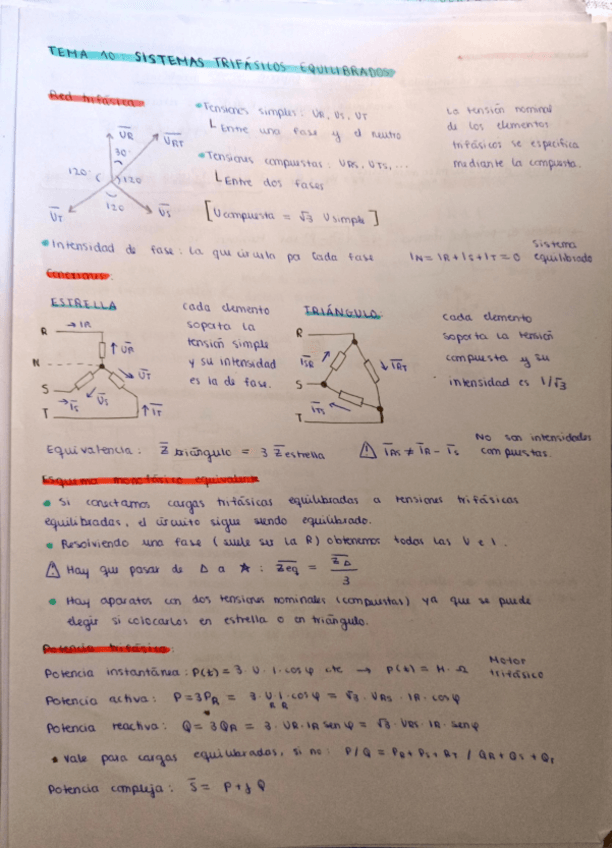 TEMA 10: SISTEMAS TRIFÁSICOS EQUILIBRADOS
Red trifásica
• Tensiones simples: UR, US, UT
Entre una fase y el neutro
• Tensiones compuestas: URS, UTS, ...
Entre dos fases
[Ucompuesta = √3 Usimple]
La tensión nominal
de los elementos
trifásicos se especifica
mediante la compuesta.
UR
URT
30°
120°
120
120
UT
US
• Intensidad de fase: La que circula por cada fase
IN = IR + IS + IT = 0
sistema
equilibrado
ESTRELLA
R
IR
UR
N
UT
S
IS
US
T
IT
cada elemento
soporta la
tensión simple
y su intensidad
es la de fase.
TRIÁNGULO
R
ISR
IRT
S
ITS
T
cada elemento
soporta la tensión
compuesta y su
intensidad es 1/√3
Equivalencia: Z triángulo = 3 Z estrella
⚠ IRS ≠ IR - IS
No son intensidades
compuestas.
Esquema monofásico equivalente
• Si conectamos cargas trifásicas equilibradas a tensiones trifásicas
equilibradas, el circuito sigue siendo equilibrado.
• Resolviendo una fase (suele ser la R) obtenemos todas las U e I.
⚠ Hay que pasar de Δ a ★: Zeq = ZΔ / 3
• Hay aparatos con dos tensiones nominales (compuestas) ya que se puede
elegir si colocarlos en estrella o en triángulo.
Potencia trifásica:
Potencia instantánea: p(t) = 3·U·I·cosφ cte → p(t) = M·Ω
Motor
trifásico
Potencia activa: P = 3PR = 3·UR·IR·cosφ = √3·URS·IR·cosφ
Potencia reactiva: Q = 3QR = 3·UR·IR senφ = √3·URS·IR·senφ
• Vale para cargas equilibradas, si no: P/Q = PR + PS + PT / QR + QS + QT
Potencia compleja: S = P + j Q